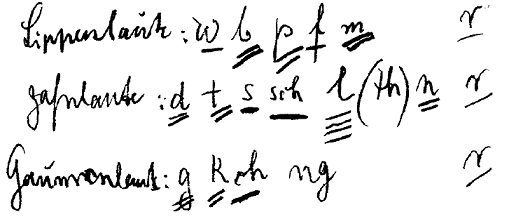 Lippenlaute: w b p f m r
Zahnlaute: d t s sch l (th) n r
Gaumenlaute: g k ch ng r